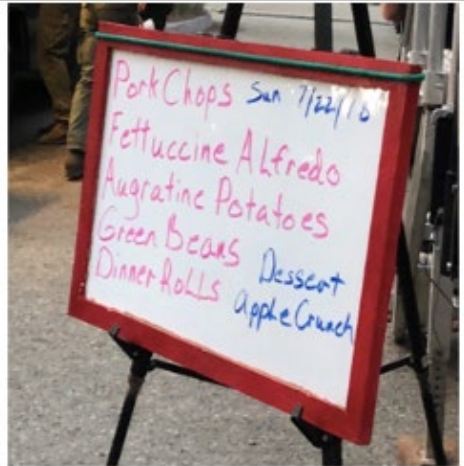 Pork Chops Sun 7/22/18
Fettuccine Alfredo
Augratine Potatoes
Green Beans
Dinner Rolls
Dessert
Apple Crunch